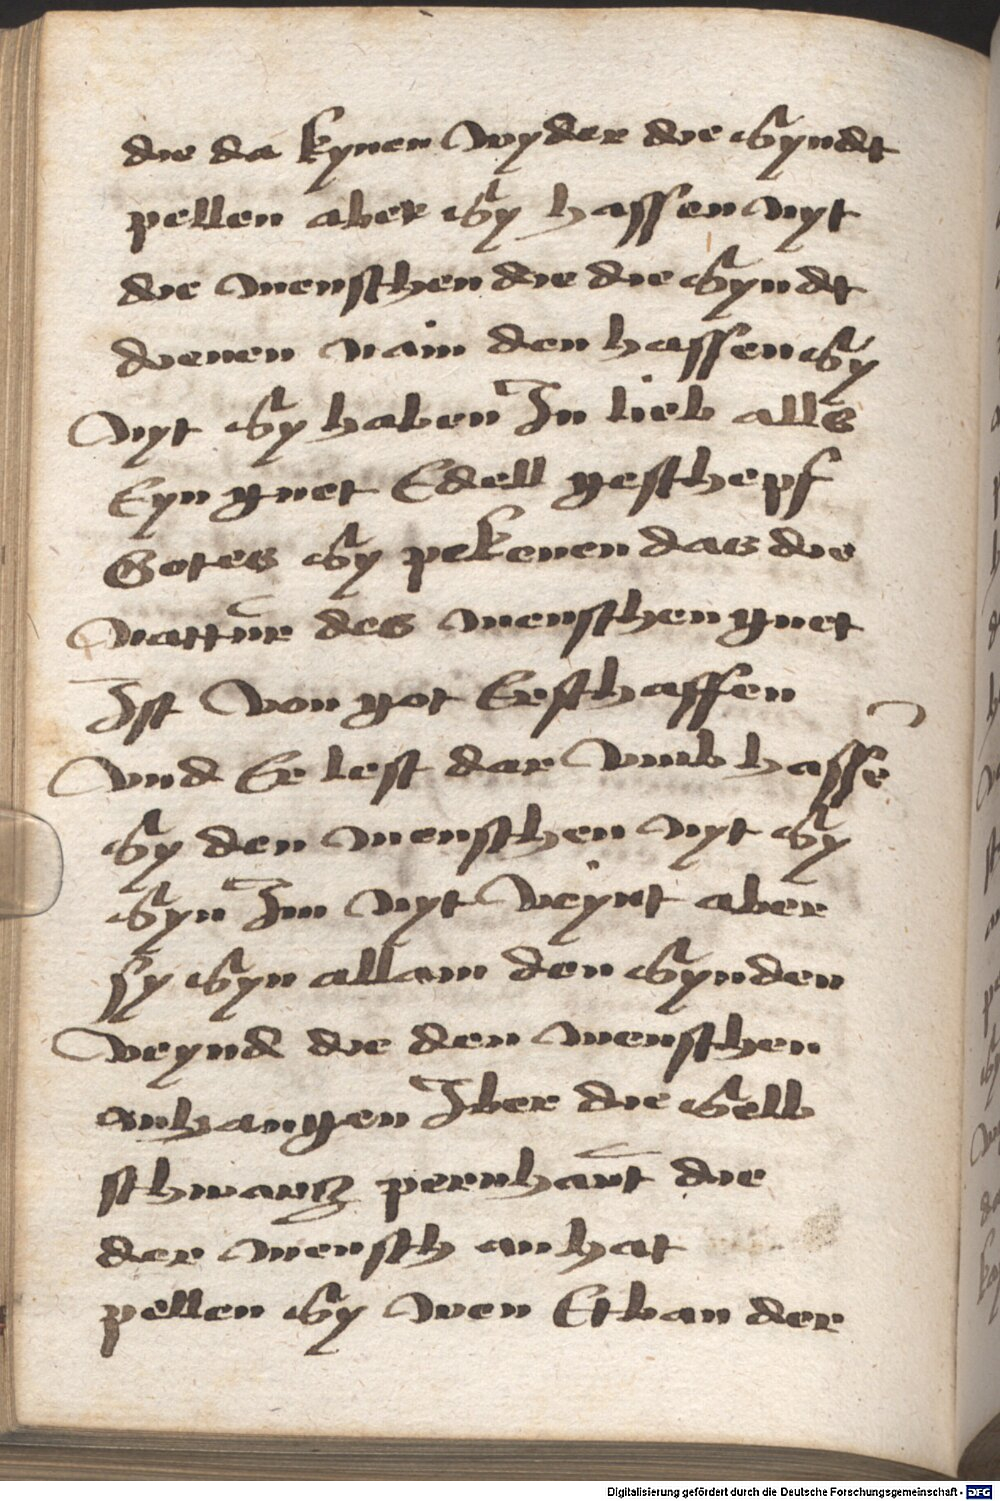 die da kynen wyder die Synndt
pellen aber Sy hassen nyt
die menschen die die Syndt
dienen nain den hassen Sy
nyt Sy haben In lieb alls
Eyn guet Edell geschepf
Gotes Sy pekenen das die
nattur des menschen guet
Ist von got Erschaffen
vnd Er lest dar vmb hasse
Sy den menschen nyt Sy
Syn Im nyt veynt aber
sy Syn allain den Synden
veynd die den menschen
anhangen Iber die Selb
schwartz pernhaut die
der mensch anhat
pellen Sy wen Etban der
Digitalisierung gefördert durch die Deutsche Forschungsgemeinschaft - DFG